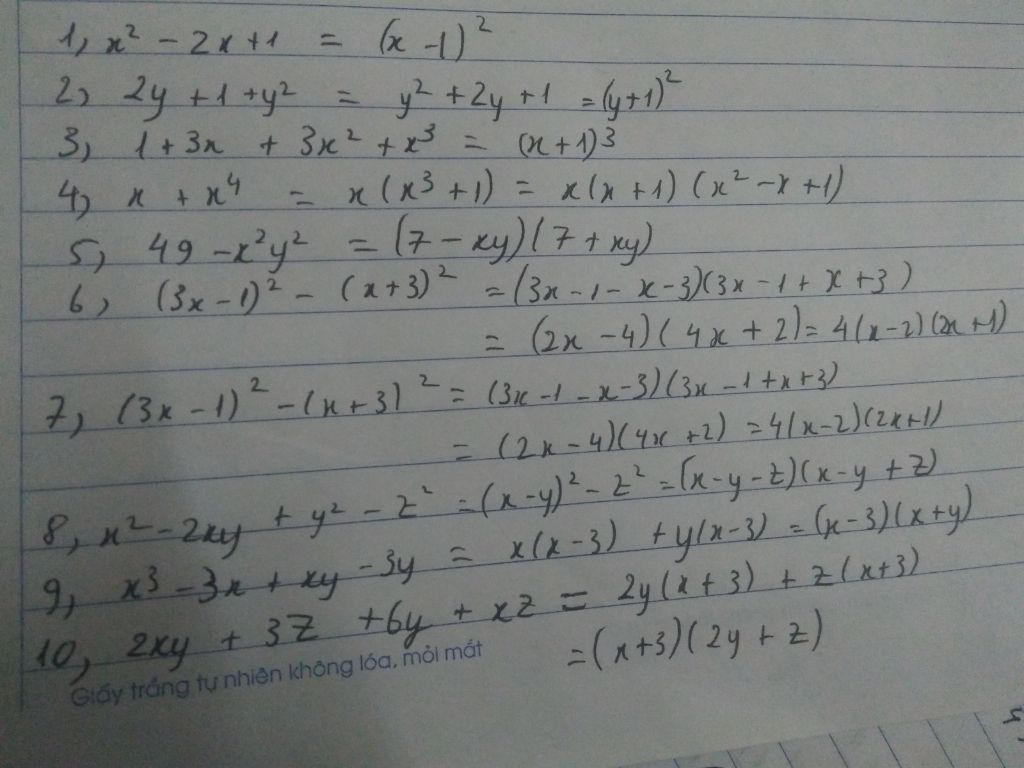 1, x² - 2x + 1 = (x - 1)²
2, 2y + 1 + y² = y² + 2y + 1 = (y+1)²
3, 1 + 3x + 3x² + x³ = (x+1)³
4, x + x⁴ = x(x³ + 1) = x(x + 1)(x² - x + 1)
5, 49 - x²y² = (7 - xy)(7 + xy)
6, (3x - 1)² - (x+3)² = (3x - 1 - x - 3)(3x - 1 + x + 3)
= (2x - 4)(4x + 2) = 4(x-2)(2x+1)
7, (3x - 1)² - (x+3)² = (3x - 1 - x - 3)(3x - 1 + x + 3)
= (2x - 4)(4x + 2) = 4(x-2)(2x+1)
8, x² - 2xy + y² - z² = (x-y)² - z² = (x-y-z)(x-y+z)
9, x³ - 3x + xy - 3y = x(x-3) + y(x-3) = (x-3)(x+y)
10, 2xy + 3z + 6y + xz = 2y(x+3) + z(x+3)
= (x+3)(2y+z)
Giấy trắng tự nhiên không lóa, mỏi mắt